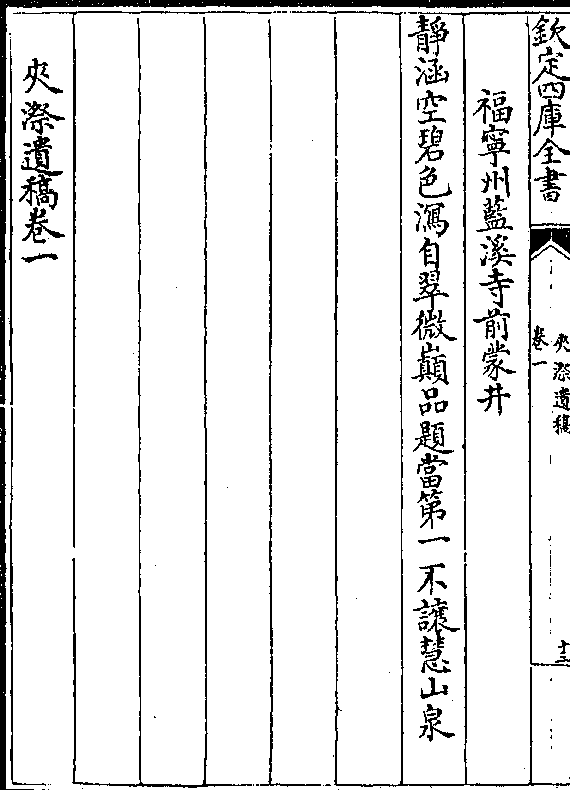 欽定四庫全書
夾漈遺稿
卷一
十三
福寧州藍溪寺前蒙井
靜涵空碧色瀉自翠微巔品題當第一不讓慧山泉
夾漈遺稿卷一